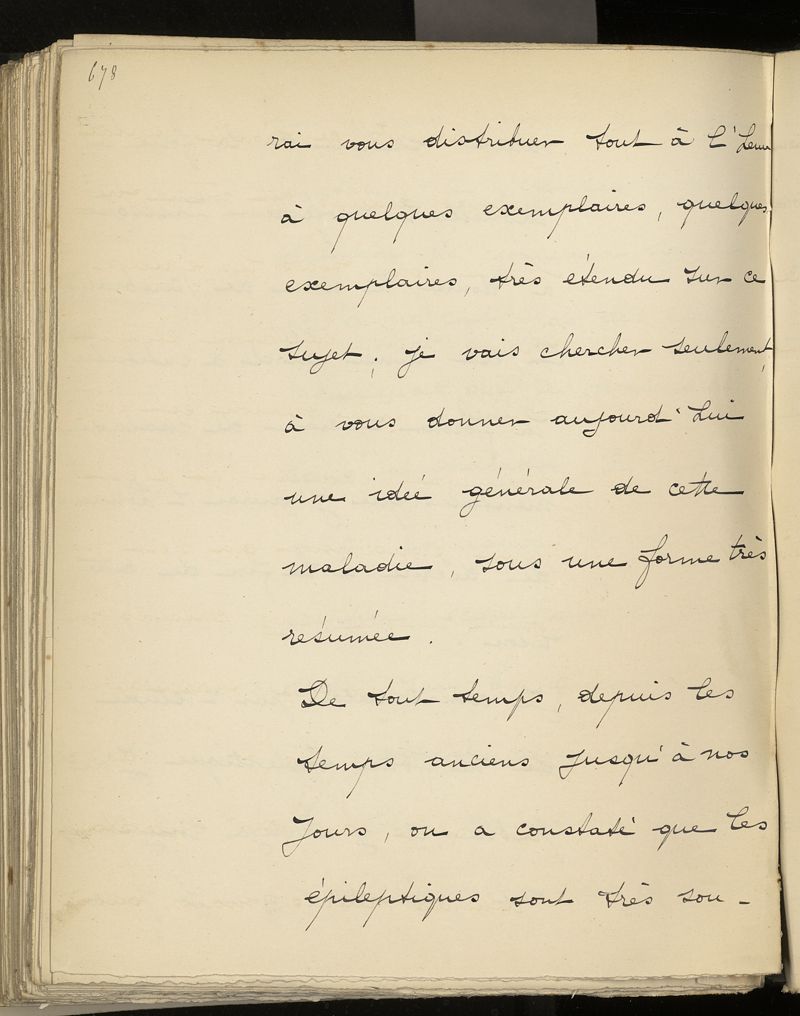 678
rai vous distribuer tout à l'heure
à quelques exemplaires, quelques
exemplaires, très étendu sur ce
sujet ; je vais chercher seulement,
à vous donner aujourd'hui
une idée générale de cette
maladie, sous une forme très
resumée.
De tout temps, depuis les
temps anciens jusqu'à nos
jours, on a constaté que les
épileptiques sont très sou-